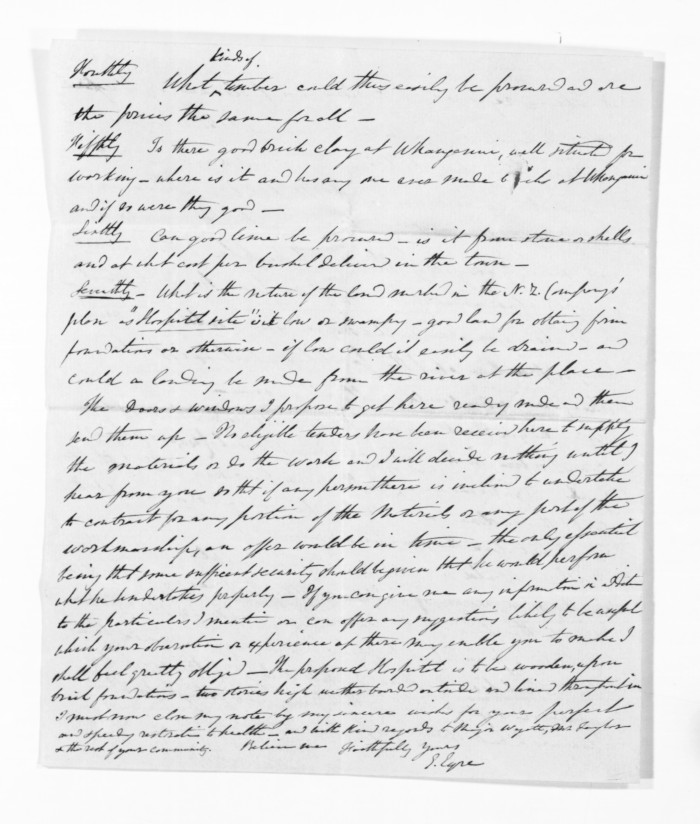 kinds of
Fourthly What ^ timber could thus easily be procured and are
the prices the same for all –
Fifthly Is there good brick clay at Whanganui, well situated for
working – where is it and has any one ever made bricks at Whanganui
and if so were they good –
Sixthly Can good lime be procured – is it from stone or shells
and at what cost per bushel deliver in the town –
Seventhly – What is the nature of the land marked in the N. Z. Company's
plan as "Hospital site" is it low or swampy – good land for obtaing firm
foundations or otherwise – if low could it easily be drained – and
could a landing be made from the river at the place –
The Doors & windows I propose to get here ready made and then
send them up – No eligible tenders have been received here to supply
the materials or do the work and I will decide nothing until I
hear from you so that if any person there is inclined to undertake
to contract for any portion of the Materials or any part of the
workmanship, an offer would be in time – the only essential
being that some sufficient security should be given that he would perform
what he undertakes properly – If you can give me any information in addition
to the particulars I mention or can offer any suggestions likely to be useful
which your observation or experience up there may enable you to make I
shall feel greatly obliged – The proposed Hospital is to be wooden, upon
brick foundations – two stories high weather boarded outside and lined throughout in
I must now close my note by my sincere wishes for your perfect
and speedy restoration to health – and with kind regards to Major Wyatt, Mr Taylor
& the rest of your community. Believe me Faithfully Yours
E. Eyre